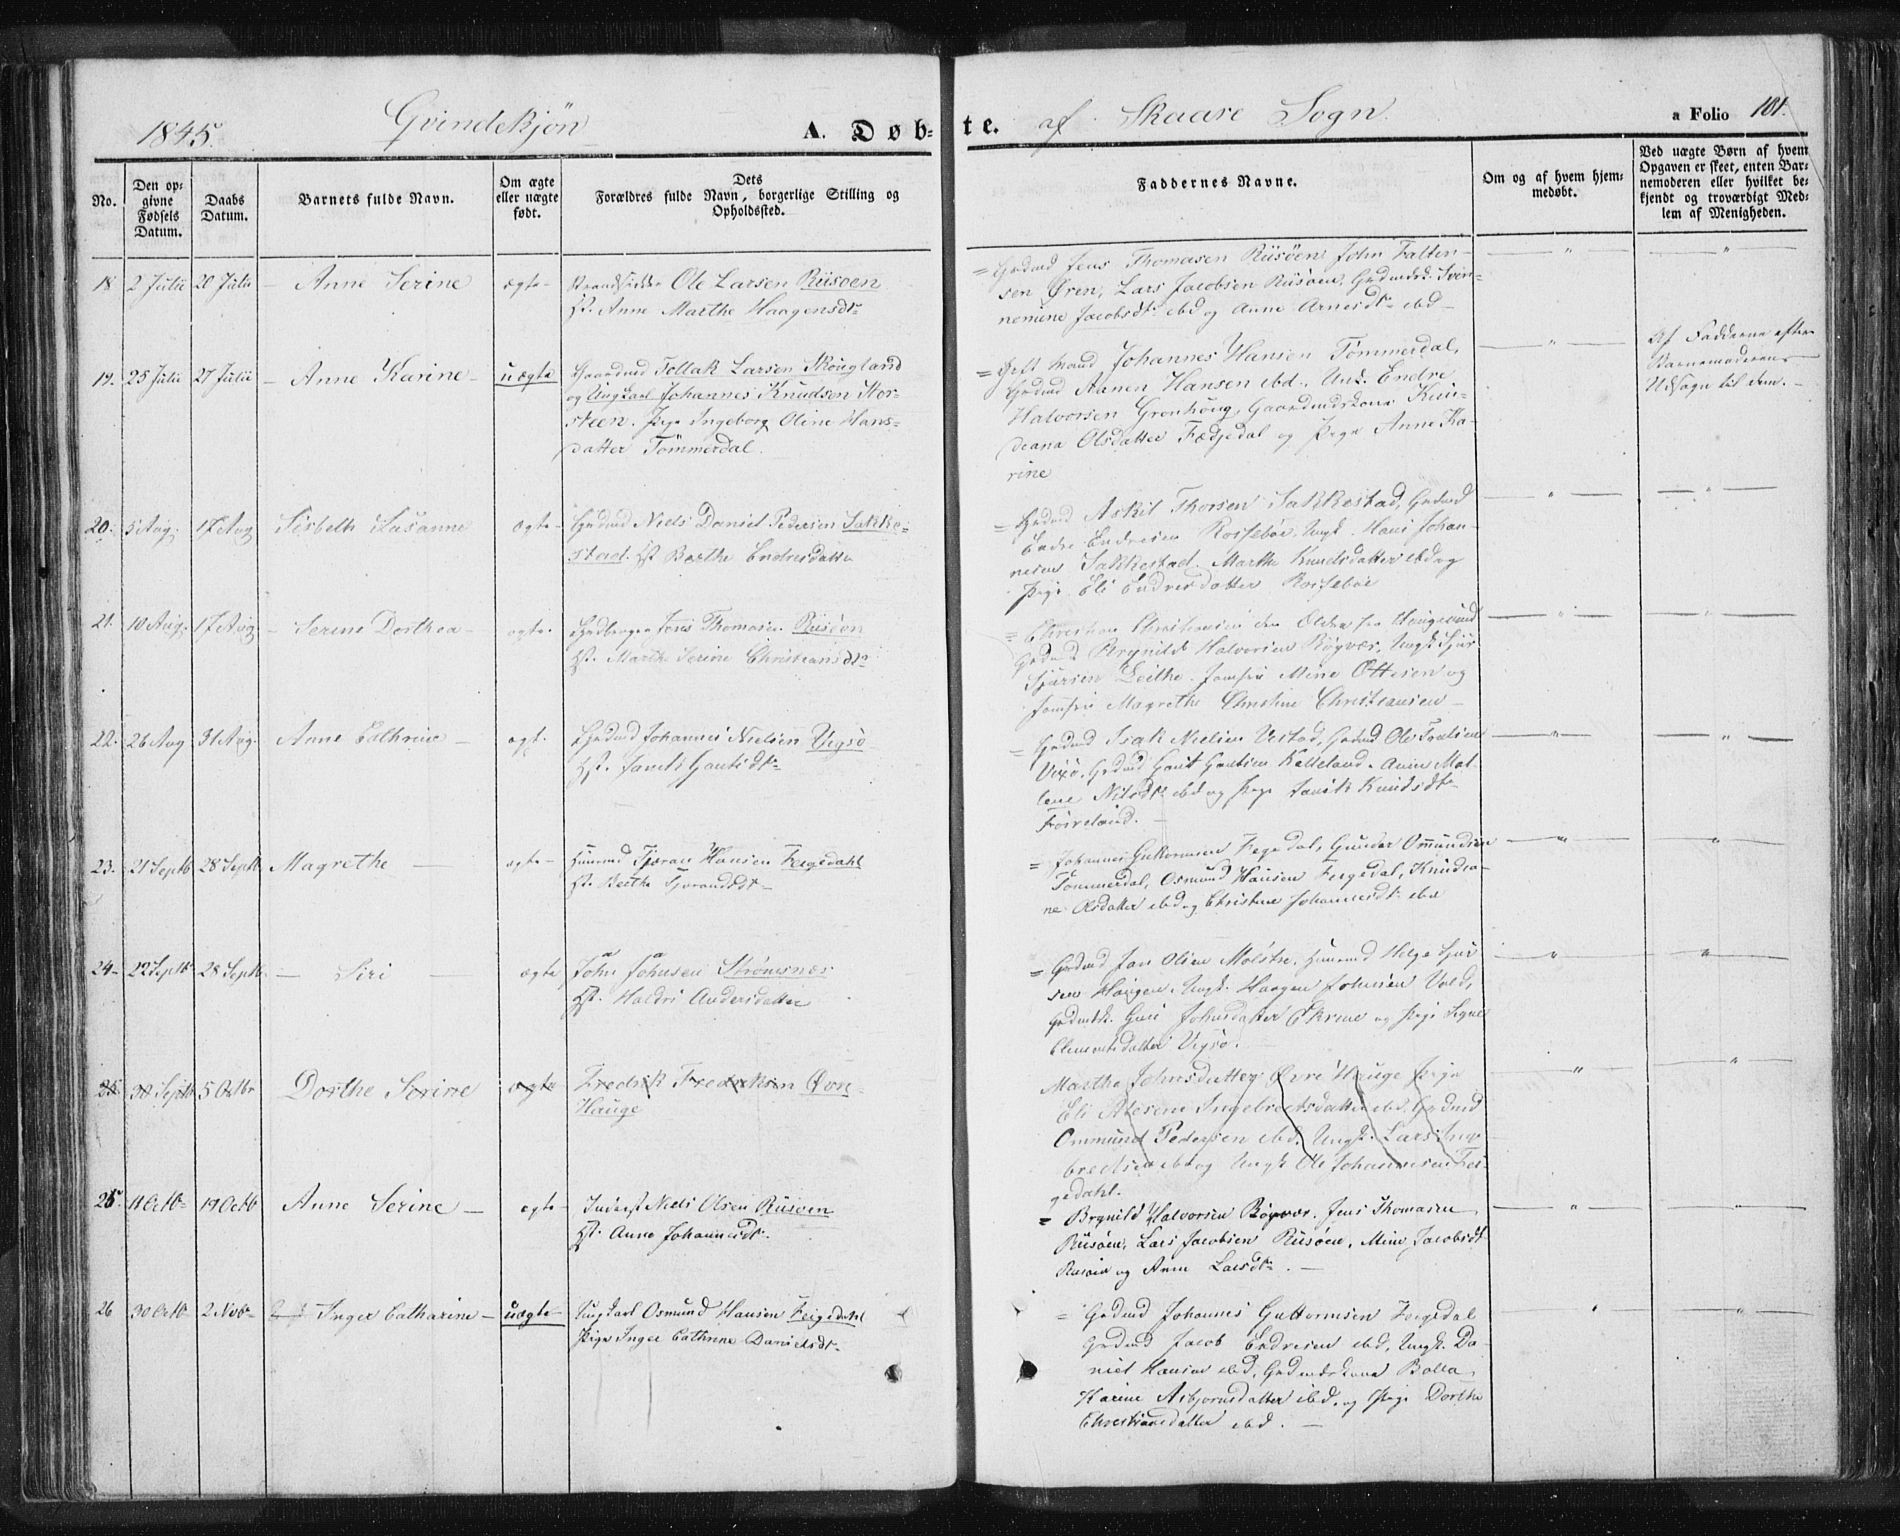 1845. Qvindekjön A. Døb-te. af Skaare Sogn. a Folio 101.
No.
Den op-
givne
Fødsels
Datum.
Daabs
Datum.
Barnets fulde Navn.
Om ægte
eller uægte
født.
Dets
Forældres fulde Navn, borgerlige Stilling og
Opholdssted.
Faddernes Navne.
Om og af hvem hjem-
medøbt.
Ved uægte Børn af hvem
Opgaven er skeet, enten Bar-
nemoderen eller hvilket be-
kjendt og troværdigt Med-
lem af Menigheden.
18 2 Julii 20 Julii - Anne Serine ægte - Ole Larsen Riisøen
H. Anne Marthe Haagensdtr
= Grdmd Jens Thomasen Riisøen John Falten-
sen Øren, Lars Jacobsen Riisøen, Grdmdsk. Sven-
nemine Jacobsdt. ebd og Anne Arnesdtr ebd -
19. 25 Julii 27 Julii - Anne Karine - uægte Gaardmd Tollak Larsen Skougland
og Ungkarl Johannes Knudsen Stor-
steen. Pige Ingeborg Oline Hans-
datter Tömmerdal.
= Johannes Hansen Tömmerdal,
Grdmd Aanen Hansen ebd., Ungk. Endre
Halvorsen Grønhöug, Gaardmdskone Knu-
deana Olsdatter Fædjedal og Pige Anne Ka-
rine
Af Fadderne efter
Barnemoderens
Udsagn til dem. -
20. 5 Aug. 17 Aug Sisbeth Susanne ægte - Grdmd Niels Daniel Pedersen Sakke-
stad. H. Berthe Endresdatter
= Grdmd Askil Thorsen Sakkestad, Grdmd
Endre Endresen Rossebøe, Ungk. Hans Johan-
nesen Sakkestad. Marthe Knudsdatter ebd og
Pige Eli Endresdatter Rossebøe
21. 10 Aug. 17 Aug. - Serine Dorthea - ægte. Jens Thomasen Riisøen
H. Marthe Serine Christiansdtr
= Christian Christiansen den Ældre fra Haugesund
Grdmd Brynild Halvorsen Røgvær, Ungk Sjur
Sjursen Leithe. Jomfru Mine Ottesen og
Jomfru Magrethe Christine Christiansen -
22. 26 Aug 31 Aug. Anne Cathrine - ægt. Grdmd Johannes Nielsen Vigsø
H. Gautsdtr
= Grdmd Isak Nielsen Vestad, Grdmd Ole
Vixø, Grdmd Gaut Gautsen Kalleland. Anne Mal-
lene Nilsdtr ebd og Pige Knudsdtr
23. 21 Septb 28 Septb. Magrethe - ægte - Huusmd Tjøran Hansen Feigedahl
H. Berthe Tjørandsdt -
= Johannes Guttormsen Feigedal, Gunder Ommundsen
Tömmerdal, Osmund Hansen Feigedal, Knudea-
ne Olsdatter ebd og Christine Johannesdt. ebd
24 - 22 Septb 28 Septb. - Siri - ægte John Johnsen Strömsnæs
H. Haldri Andersdatter
= Grdmd Jan Olsen Mølstre, Huusmd Helge Sjur
sen Haugen. Ungk. Haagen Johnsen Vold,
Grdmdsk. Guri Johnsdatter Ekrene og Pige Signe
Clemetsdatter Vigsø.
25 30 Septb 5 Octbr Dorthe Serine ægte Fredrik Fredriksen Øvre-
Hauge
Marthe Johnsdatter Øvre Hauge Pige
Eli Ingebretsdatter ebd. Grdmd
Ommund Pedersen ebd. Ungk. Lars Inge
bretsen ebd og Ungk Ole Johannesen Fei-
gedahl.
25. 11 Octb 19 Octb Anne Serine - ægte - Niels Olsen Riisøen
H. Anne Johannesdt.
= Brynild Halvorsen Røgvær, Jens Thomasen
Riisøen, Lars Jacobsen Riisøen, Mine Jacobsdt
Riisøen og Anne Larsdtr. -
26 30 Octb 2 Novbr Inger Catharine - uægte - Ungkarl Osmund Hansen Feigedahl
Pige Inger Cathrine Danielsdtr
= Grdmd Johannes Guttormsen Feigedal
Grdmd Jacob Endresen ebd, Ungk. Da-
niel Hansen ebd, Grdmdskone Bolla
Karine Asbjørnsdatter ebd. og Pige Dorthe
Christiansdatter ebd. -